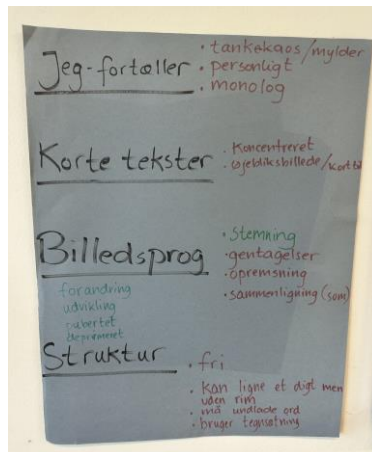 Jeg-fortæller
· tankekaos/mylder
· personligt
· monolog
Korte tekster
· Koncentreret
· øjebliksbillede/kort tid
Billedsprog
· Stemning
· gentagelser
· opremsning
· sammenligning (som)
forandring
udvikling
pubertet
Struktur
· fri
· kan ligne et digt men
uden rim
· må undlade ord
· bruger tegnsætning